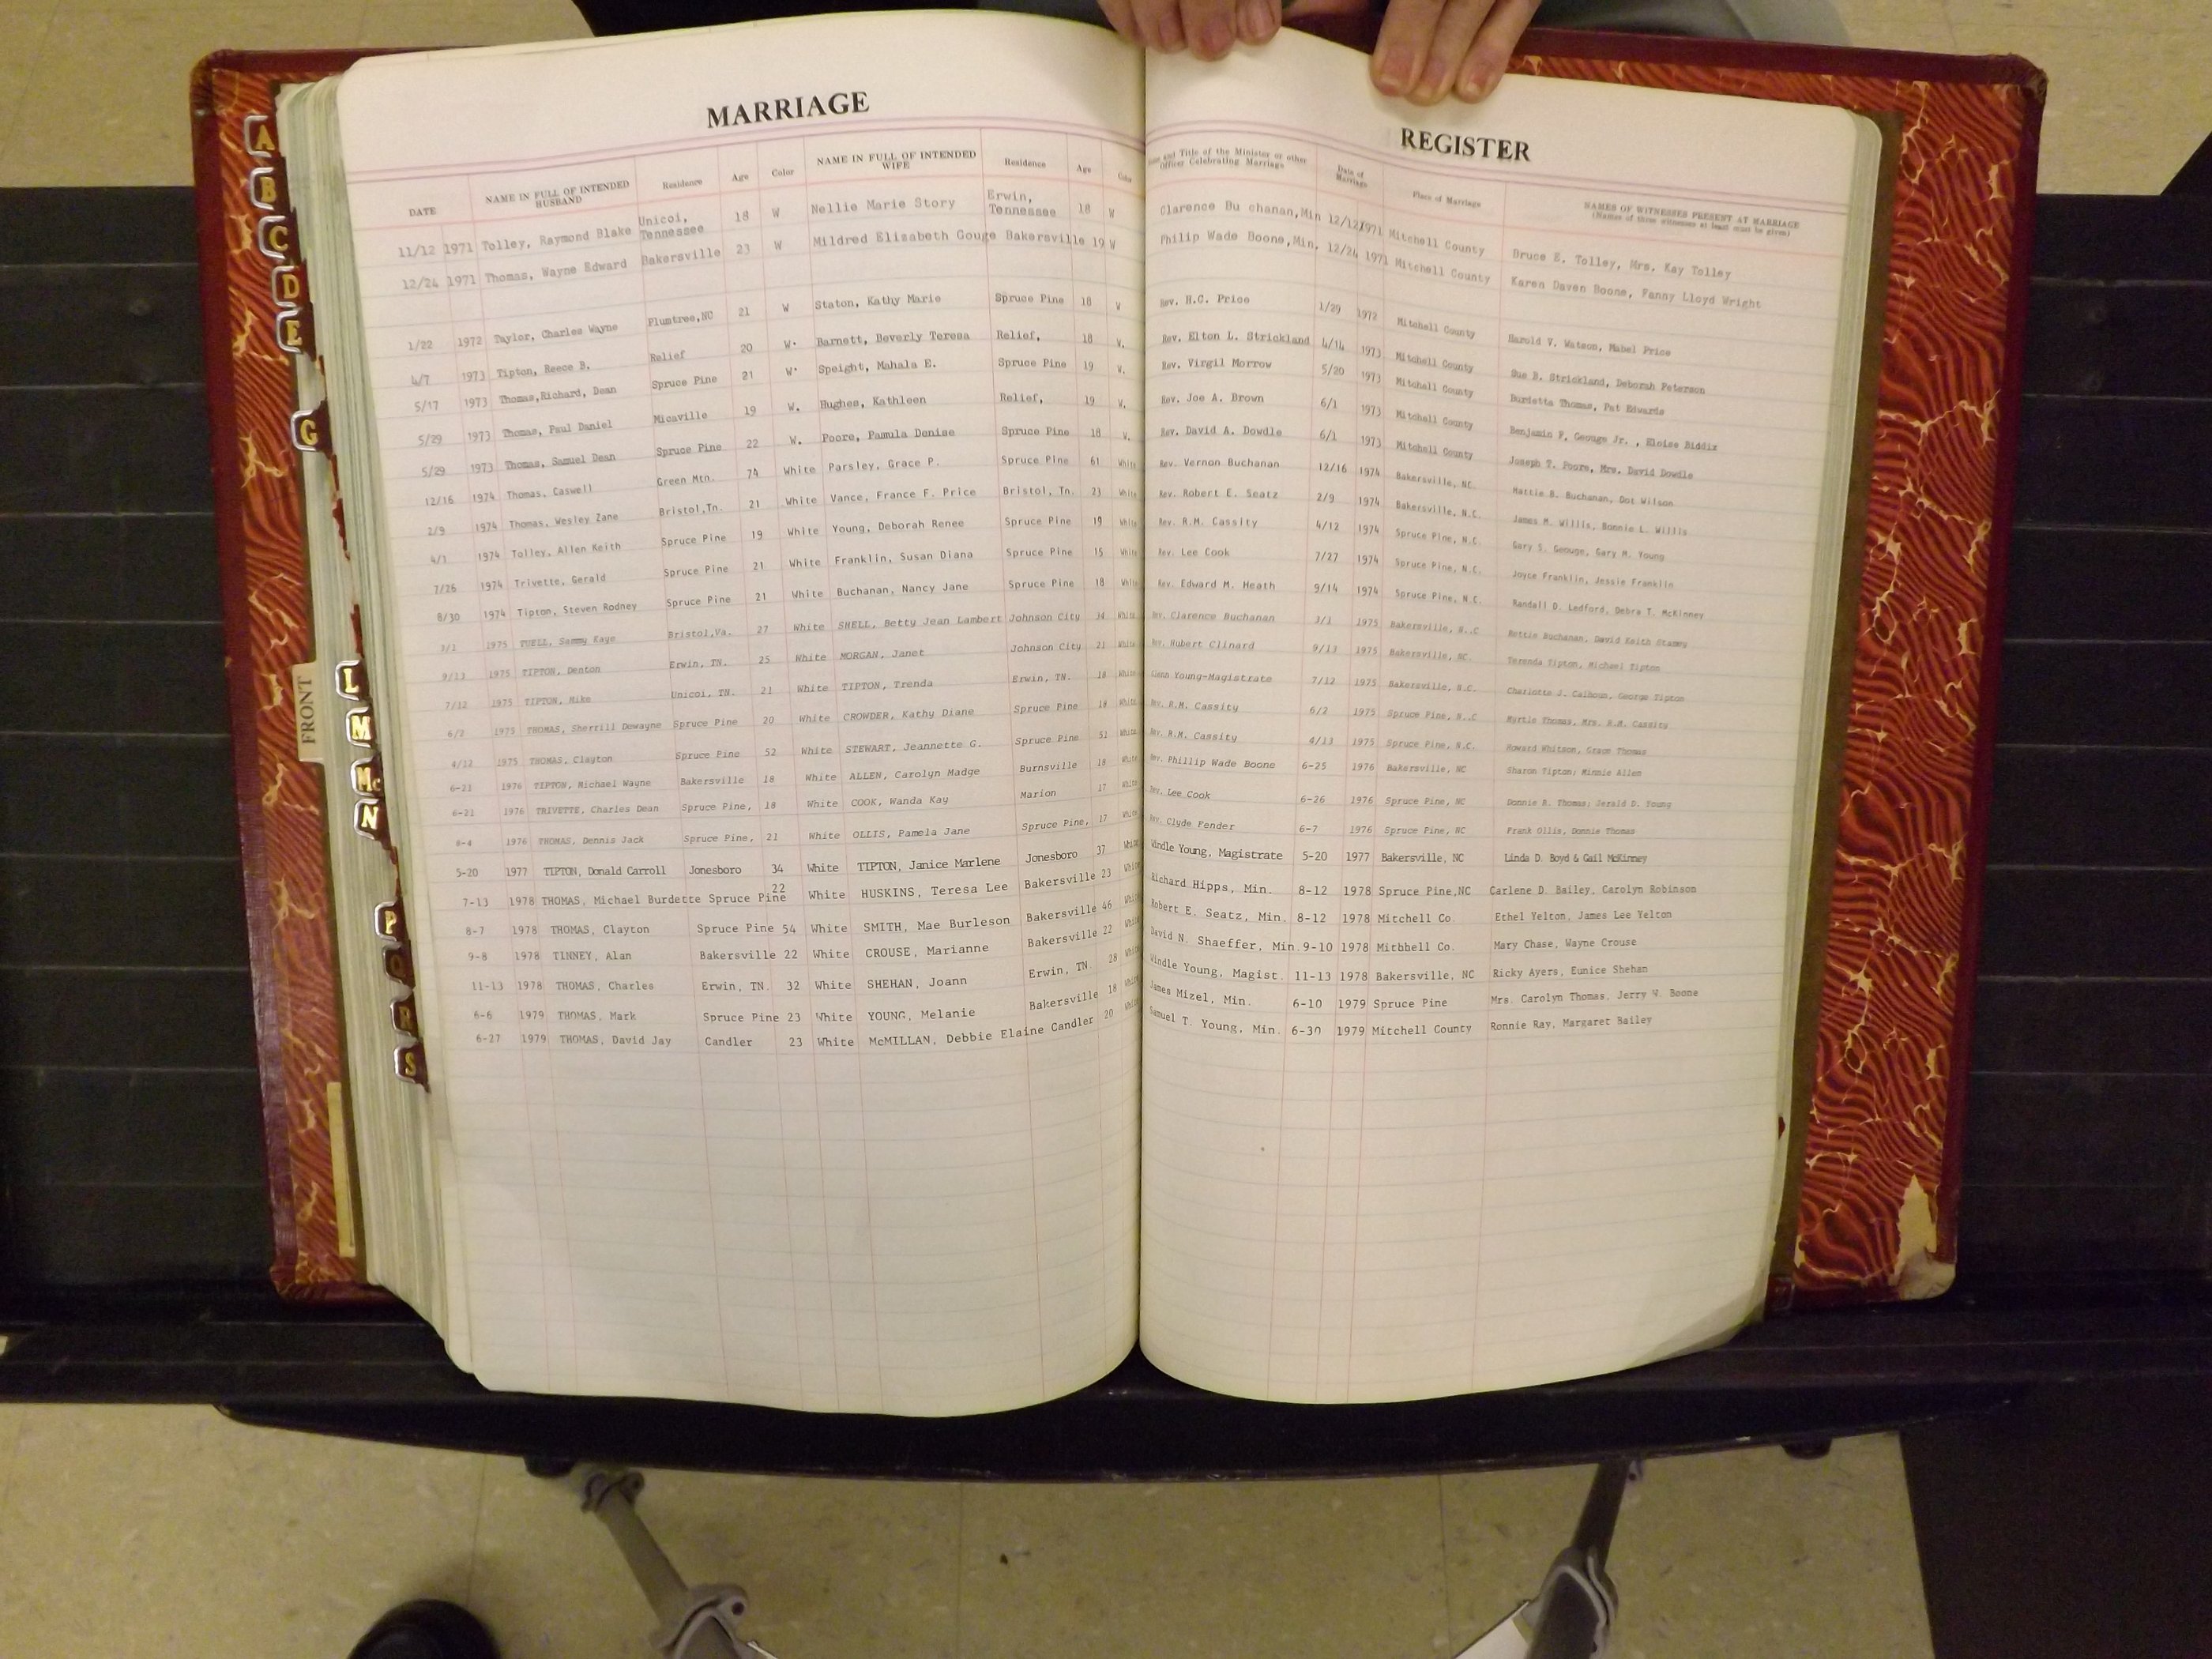 MARRIAGE REGISTER
DATE NAME IN FULL OF INTENDED HUSBAND Residence Age Color NAME IN FULL OF INTENDED WIFE Residence Age Color and Title of the Minister or other Officer Celebrating Marriage Date of Marriage Place of Marriage NAMES OF WITNESSES PRESENT AT MARRIAGE (Names of three witnesses at least must be given)
11/12 1971 Tolley, Raymond Blake Unicoi, Tennessee 18 W Nellie Marie Story Erwin, Tennessee 18 W Clarence Bu chanan,Min 12/12 1971 Mitchell County Bruce E. Tolley, Mrs. Kay Tolley
12/24 1971 Thomas, Wayne Edward Bakersville 23 W Mildred Elizabeth Gouge Bakersville 19 W Philip Wade Boone,Min, 12/24 1971 Mitchell County Karen Daven Boone, Fanny Lloyd Wright
1/22 1972 Taylor, Charles Wayne Plumtree,NC 21 W Staton, Kathy Marie Spruce Pine 18 W Rev. H.C. Price 1/29 1972 Mitchell County Harold V. Watson, Mabel Price
4/7 1973 Tipton, Reece B. Relief 20 W. Barnett, Beverly Teresa Relief, 18 W. Rev. Elton L. Strickland 4/14 1973 Mitchell County Sue B. Strickland, Deborah Peterson
5/17 1973 Thomas,Richard, Dean Spruce Pine 21 W. Speight, Mahala E. Spruce Pine 19 W. Rev. Virgil Morrow 5/20 1973 Mitchell County Burdetta Thomas, Pat Edwards
5/29 1973 Thomas, Paul Daniel Micaville 19 W. Hughes, Kathleen Relief, 19 W. Rev. Joe A. Brown 6/1 1973 Mitchell County Benjamin F. Geouge Jr. , Eloise Biddix
5/29 1973 Thomas, Samuel Dean Spruce Pine 22 W. Poore, Pamula Denise Spruce Pine 18 W. Rev. David A. Dowdle 6/1 1973 Mitchell County Joseph T. Poore, Mrs. David Dowdle
12/16 1974 Thomas, Caswell Green Mtn. 74 White Parsley, Grace P. Spruce Pine 61 White Rev. Vernon Buchanan 12/16 1974 Bakersville, NC. Hattie B. Buchanan, Dot Wilson
2/9 1974 Thomas, Wesley Zane Bristol,Tn. 21 White Vance, France F. Price Bristol, Tn. 23 White Rev. Robert E. Seatz 2/9 1974 Bakersville, N.C. James M. Willis, Bonnie L. Willis
4/1 1974 Tolley, Allen Keith Spruce Pine 19 White Young, Deborah Renee Spruce Pine 19 White Rev. R.M. Cassity 4/12 1974 Spruce Pine, N.C. Gary S. Geouge, Gary M. Young
7/26 1974 Trivette, Gerald Spruce Pine 21 White Franklin, Susan Diana Spruce Pine 15 White Rev. Lee Cook 7/27 1974 Spruce Pine, N.C. Joyce Franklin, Jessie Franklin
8/30 1974 Tipton, Steven Rodney Spruce Pine 21 White Buchanan, Nancy Jane Spruce Pine 18 White Rev. Edward M. Heath 9/14 1974 Spruce Pine, N.C. Randall D. Ledford, Debra T. McKinney
3/1 1975 TUELL, Sammy Kaye Bristol,Va. 27 White SHELL, Betty Jean Lambert Johnson City 34 White Rev. Clarence Buchanan 3/1 1975 Bakersville, N..C Buchanan, David Keith Stamey
9/13 1975 TIPTON, Denton Erwin, TN. 25 White MORGAN, Janet Johnson City 21 White Rev. Hubert Clinard 9/13 1975 Bakersville, NC. Terenda Tipton, Michael Tipton
7/12 1975 TIPTON, Mike Unicoi, TN. 21 White TIPTON, Trenda Erwin, TN. 18 White Glenn Young-Magistrate 7/12 1975 Bakersville, N.C. Charlotte J. Calhoun, George Tipton
6/2 1975 THOMAS, Sherrill Dewayne Spruce Pine 20 White CROWDER, Kathy Diane Spruce Pine 18 White Rev. R.M. Cassity 6/2 1975 Spruce Pine, N..C Myrtle Thomas, Mrs. R.M. Cassity
4/12 1975 THOMAS, Clayton Spruce Pine 52 White STEWART, Jeannette G. Spruce Pine 51 White Rev. R.M. Cassity 4/13 1975 Spruce Pine, N.C. Howard Whitson, Grace Thomas
6-21 1976 TIPTON, Michael Wayne Bakersville 18 White ALLEN, Carolyn Madge Burnsville 18 White Rev. Phillip Wade Boone 6-25 1976 Bakersville, NC Sharon Tipton; Minnie Allen
6-21 1976 TRIVETTE, Charles Dean Spruce Pine, 18 White COOK, Wanda Kay Marion 17 White Rev. Lee Cook 6-26 1976 Spruce Pine, NC Donnie R. Thomas; Gerald D. Young
6-4 1976 THOMAS, Dennis Jack Spruce Pine, 21 White OLLIS, Pamela Jane Spruce Pine, 17 White Rev. Clyde Fender 6-7 1976 Spruce Pine, NC Frank Ollis, Donnie Thomas
5-20 1977 TIPTON, Donald Carroll Jonesboro 34 White TIPTON, Janice Marlene Jonesboro 37 White Windle Young, Magistrate 5-20 1977 Bakersville, NC Linda D. Boyd & Gail McKinney
7-13 1978 THOMAS, Michael Burdette Spruce Pine 22 White HUSKINS, Teresa Lee Bakersville 23 White Richard Hipps, Min. 8-12 1978 Spruce Pine,NC Carlene D. Bailey, Carolyn Robinson
8-7 1978 THOMAS, Clayton Spruce Pine 54 White SMITH, Mae Burleson Bakersville 46 White Robert E. Seatz, Min. 8-12 1978 Mitchell Co. Ethel Yelton, James Lee Yelton
9-8 1978 TINNEY, Alan Bakersville 22 White CROUSE, Marianne Bakersville 22 White David N. Shaeffer, Min. 9-10 1978 Mitbhell Co. Mary Chase, Wayne Crouse
11-13 1978 THOMAS, Charles Erwin, TN. 32 White SHEHAN, Joann Erwin, TN. 28 White Windle Young, Magist. 11-13 1978 Bakersville, NC Ricky Ayers, Eunice Shehan
6-6 1979 THOMAS, Mark Spruce Pine 23 White YOUNG, Melanie Bakersville 18 White James Mizel, Min. 6-10 1979 Spruce Pine Mrs. Carolyn Thomas, Jerry W. Boone
6-27 1979 THOMAS, David Jay Candler 23 White McMILLAN, Debbie Elaine Candler 20 White Samuel T. Young, Min. 6-30 1979 Mitchell County Ronnie Ray, Margaret Bailey
A
B
C
D
E
G
FRONT
L
M
Mc
N
P
Q
R
S